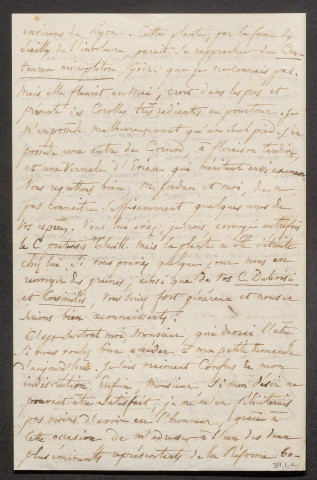 environs de Lyon. Cette plante, par la forme des
écailles de l'involucre, paraît se rapprocher du Cen-
taurea microptilon, Godr. que je ne connais pas.
Mais elle fleurit en Mai; croît dans les prés et
présente des Corolles très radiantes au pourtour. Je
n'en possède malheureusement qu'un seul pied. Je
possède une autre de Cornod, à floraison tardive,
et une Vernale d'Evian que méritent aussi examen.
Nous regrettons bien, Mr et moi, de ne
pas connaître suffisamment quelques unes de
vos espèces. Vous lui avez, je crois, envoyé autrefois
le C. Thuill. mais la plante a été détruite
chez lui. Si vous pouviez quelque jour nous en
renvoyer des graines, ainsi que de vos C. Duboisii
et vous seriez fort généreux et nous en
serions bien reconnaissants!
C'est surtout moi, Monsieur, qui devrai l'être
Si vous voulez bien accéder à ma petite demande
d'aujourd'hui. Je suis vraiment Confus de mon
indiscrétion. Enfin Monsieur, Si mon désir ne
pouvait être Satisfait, je n'en
pas moins d'avoir eu l'honneur, grâce à
cette occasion de m'adresser à l'un des deux
plus éminents représentants de la Réforme bo-